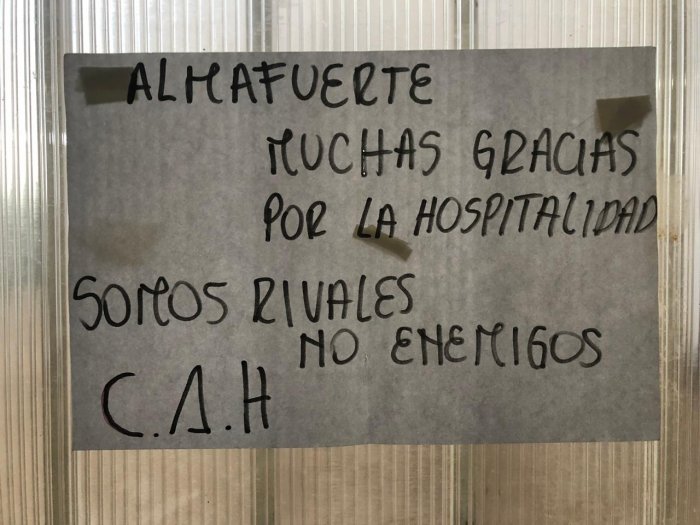 ALMAFUERTE
MUCHAS GRACIAS
POR LA HOSPITALIDAD
SOMOS RIVALES
NO ENEMIGOS
C.A.H